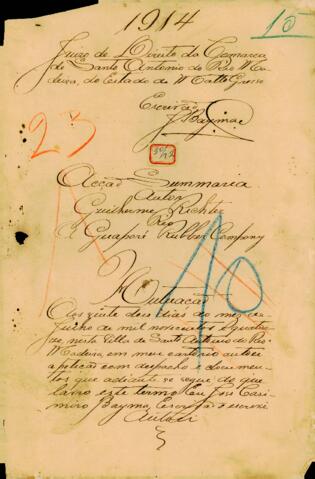 1914
15
Juizo de Direito da Comarca
de Santo Antonio do Rio Ma-
deira, do Estado de Matto Grosso
Escrivão
J Bayma
23
Acção Summaria
Autor
Guilherme Richter
Réo
A Guaporé Rubber Company
10
Autuação
Aos vinte dois dias do mez de
Junho de mil novecentos e quator-
ze, nesta Villa de Santo Antonio do Rio
Madeira, em meu cartorio autuei
a petição com despacho e documen-
tos que adiante se segue do que
lavro este termo. Eu José Casi-
miro Bayma, Escrivão o escrevi
Autuei